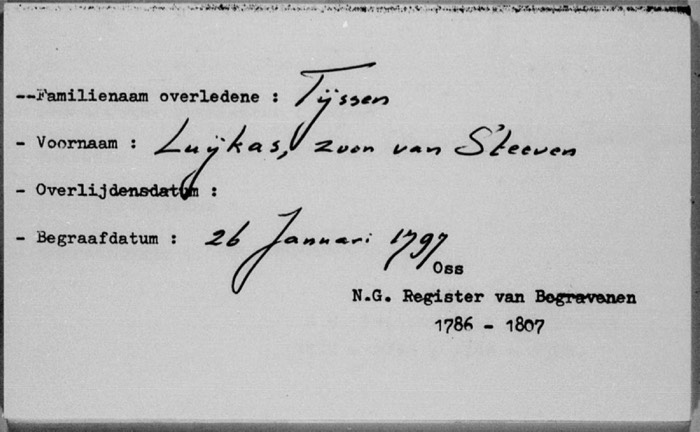 --Familienaam overledene : Tÿssen
- Voornaam : Luÿkas, zoon van Steeven
- Overlijdensdatum :
- Begraafdatum : 26 Januari 1797
Oss
N.G. Register van Begravenen
1786 - 1807